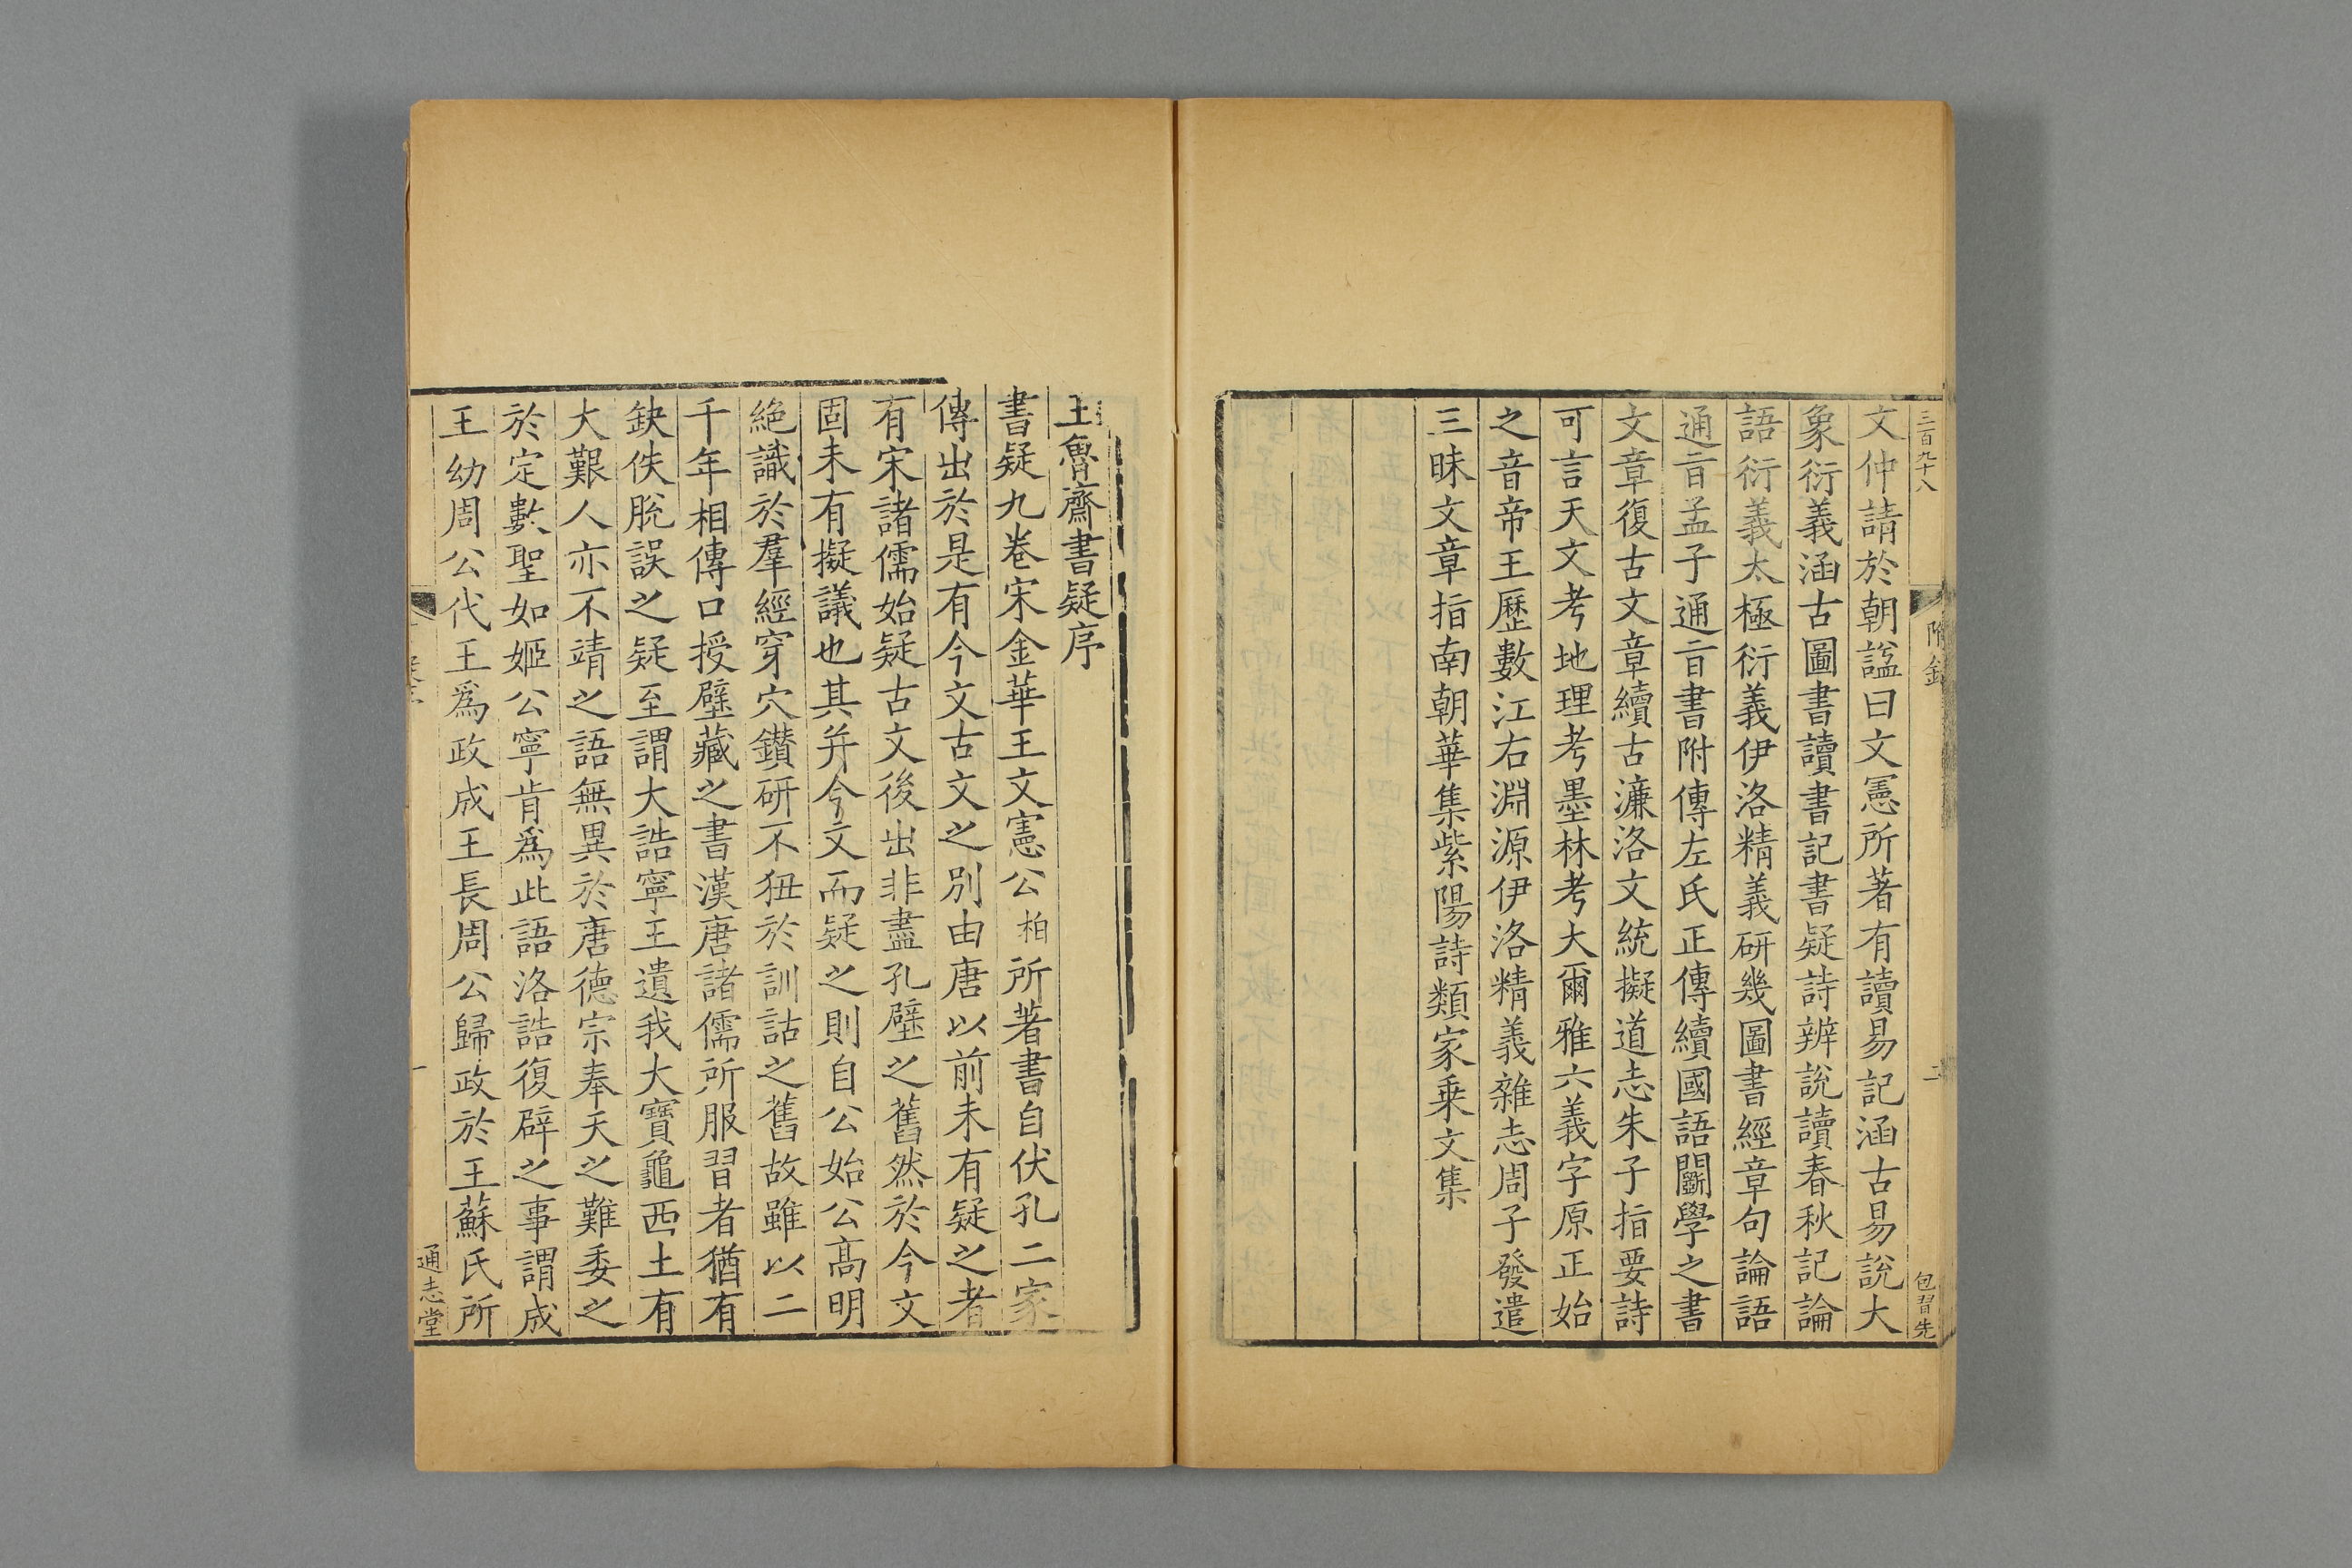 三百九十八
附錄
二
包習先
文仲請於朝諡曰文憲所著有讀易記涵古易說大
象衍義涵古圖書讀書記書疑詩辨說讀春秋記論
語衍義太極衍義伊洛精義研幾圖書經章句論語
通㫖孟子通㫖書附傳左氏正傳續國語闕學之書
文章復古文章續古濂洛文統擬道志朱子指要詩
可言天文考地理考墨林考大爾雅六義字原正始
之音帝王歷數江右淵源伊洛精義雜志周子發遣
三昧文章指南朝華集紫陽詩類家乗文集
王魯齋書疑序
書疑九卷宋金華王文憲公柏所著書自伏孔二家
傳出於是有今文古文之別由唐以前未有疑之者
有宋諸儒始疑古文後出非盡孔壁之舊然於今文
固未有擬議也其并今文而疑之則自公始公高明
絶識於羣經穿穴鑽研不狃於訓詁之舊故雖以二
千年相傳口授壁藏之書漢唐諸儒所服習者猶有
缺佚脫誤之疑至謂大誥寧王遺我大寶龜西土有
大艱人亦不靖之語無異於唐德宗奉天之難委之
於定數聖如姬公寧肯爲此語洛誥復辟之事謂成
王幼周公代王爲政成王長周公歸政於王蘇氏所
一
通志堂